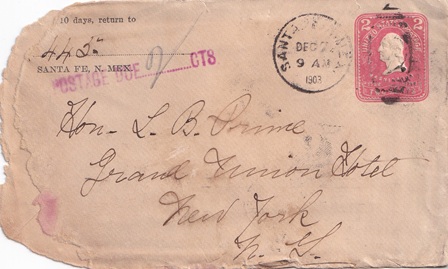 10 days, return to
445
SANTA FE, N. MEX.
POSTAGE DUE 2 CTS
SANTA FE
DEC
9 AM
1903
2 2
Hon. L. B. Prince
Grand Union Hotel
New York
N. Y.